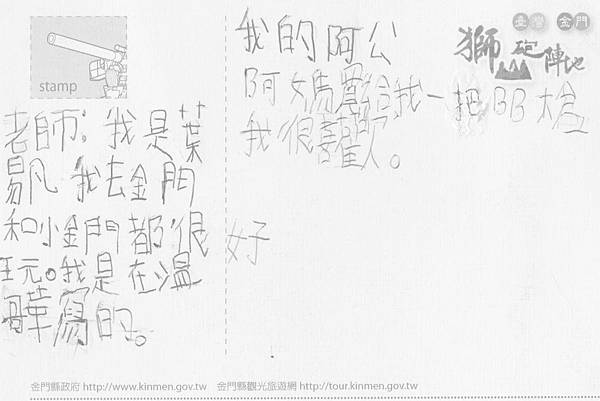 stamp
老師:我是葉
易凡 我去金門
和小金門都很 好
玩。我是在溫
哥華寫的。
我的阿公
阿媽買給我一把BB槍
我很喜歡。
臺灣 金門
獅山砲陣地
金門縣政府 http://www.kinmen.gov.tw 金門縣觀光旅遊網 http://tour.kinmen.gov.tw